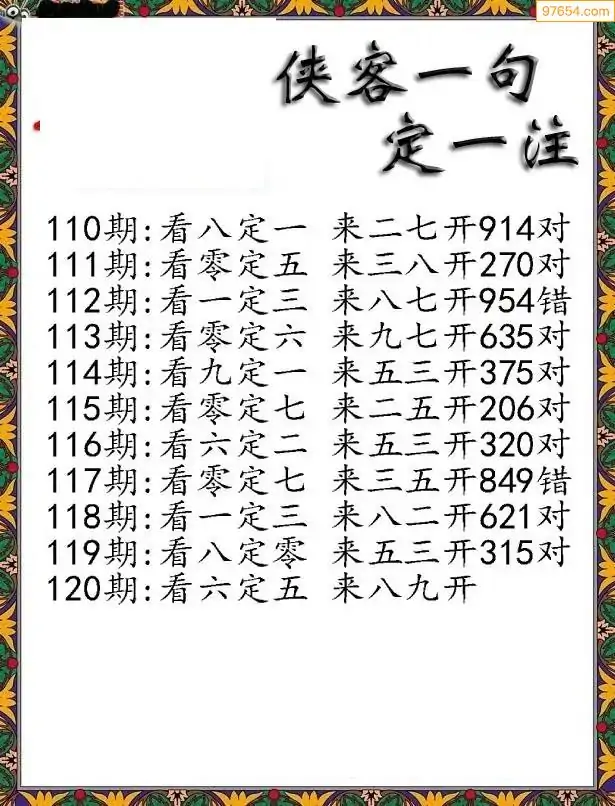 97654.com
侠客一句
定一注
110期:看八定一 来二七开914对
111期:看零定五 来三八开270对
112期:看一定三 来八七开954错
113期:看零定六 来九七开635对
114期:看九定一 来五三开375对
115期:看零定七 来二五开206对
116期:看六定二 来五三开320对
117期:看零定七 来三五开849错
118期:看一定三 来八二开621对
119期:看八定零 来五三开315对
120期:看六定五 来八九开